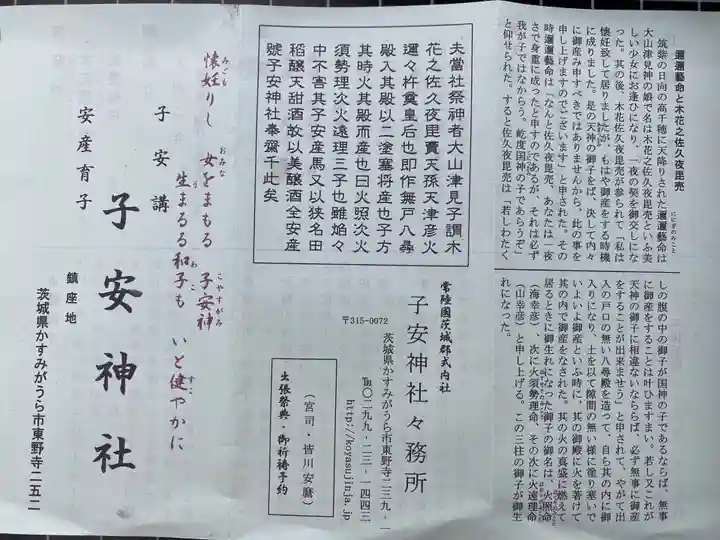 邇邇藝命と木花之佐久夜毘売
筑紫の日向の高千穂に天降りされた邇邇藝命は
ににぎのみこと
大山津見神の娘で名は木花之佐久夜毘売といふ美
しい少女にお逢ひになり、一夜の契を御交しにな
った。其の後、木花佐久夜毘売が参られて「私は
懐妊致して居りましたが、もはや御産をする時機
に成りました。是の天神の御子をば、決して内々
に御産み申すべきではありませんから、此の事を
申し上げますのでございます」と申された。その
時邇邇藝命は「なんと佐久夜毘売、あなたは一夜
さで身重に成ったと申すのであるが、それは必ず
我が子ではなからう。屹度国神の子であらうぞ」
と仰せられた。すると佐久夜毘売は「若しわたく
しの腹の中の御子が国神の子であるならば、無事
に御産をすることは叶ひますまい。若し又これが
天神の御子に相違ないならば、必ず無事に御産
をすることが出来ませう」と申されて、やがて出
入の戸口の無い八尋殿を造って、自ら其の内に御
入りになり、土を以て隙間の無い様に塗り塞いで
いよいよ御産といふ時に、其の御殿に火を著けて
其の内で御産をなされた。其の火の真盛に燃えて
居るときに御生れになった御子の御名は、火照命
（海幸彦）、次に火須勢理命、その次に火遠理命
（山幸彦）と申し上げる。この三柱の御子が御生
れになった。
夫當社祭神者大山津見子謂木
花之佐久夜毘賣天孫天津彦火
邇々杵奠皇后也即作無戸八尋
殿入其殿以二塗塞将産也子方
其時火其殿而産也曰火照次火
須勢理次火遠理三子也雖焔々
中不害其子安産馬又以狭名田
稻釀天甜酒故以美釀酒全安産
號子安神社奉齋于此矣
常陸國茨城郡式内社
子安神社々務所
〒315-0072
茨城県かすみがうら市東野寺二三九‐一
℡〇二九九‐二三‐一四四三
http://koyasujinja.jp
（宮司・皆川安麿）
出張祭典・御祈祷予約
懐妊りし 女をまもる 子安神
みごも おみな こやすがみ
生まるる和子も いと健やかに
う わこ すこ
子安講
安産育子
子安神社
鎮座地
茨城県かすみがうら市東野寺二五二